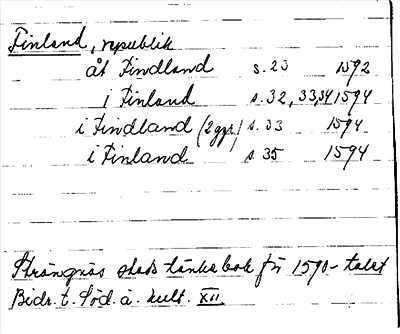 Finland, republik
åt Findland s. 23 1592
i Finland s. 32, 33, 34 1594
i Findland (2 ggr) s. 33 1594
i Finland s. 35 1594
Strängnäs stads tänkebok fr 1590-talet
Bidr. t. Söd. ä. kult. XII